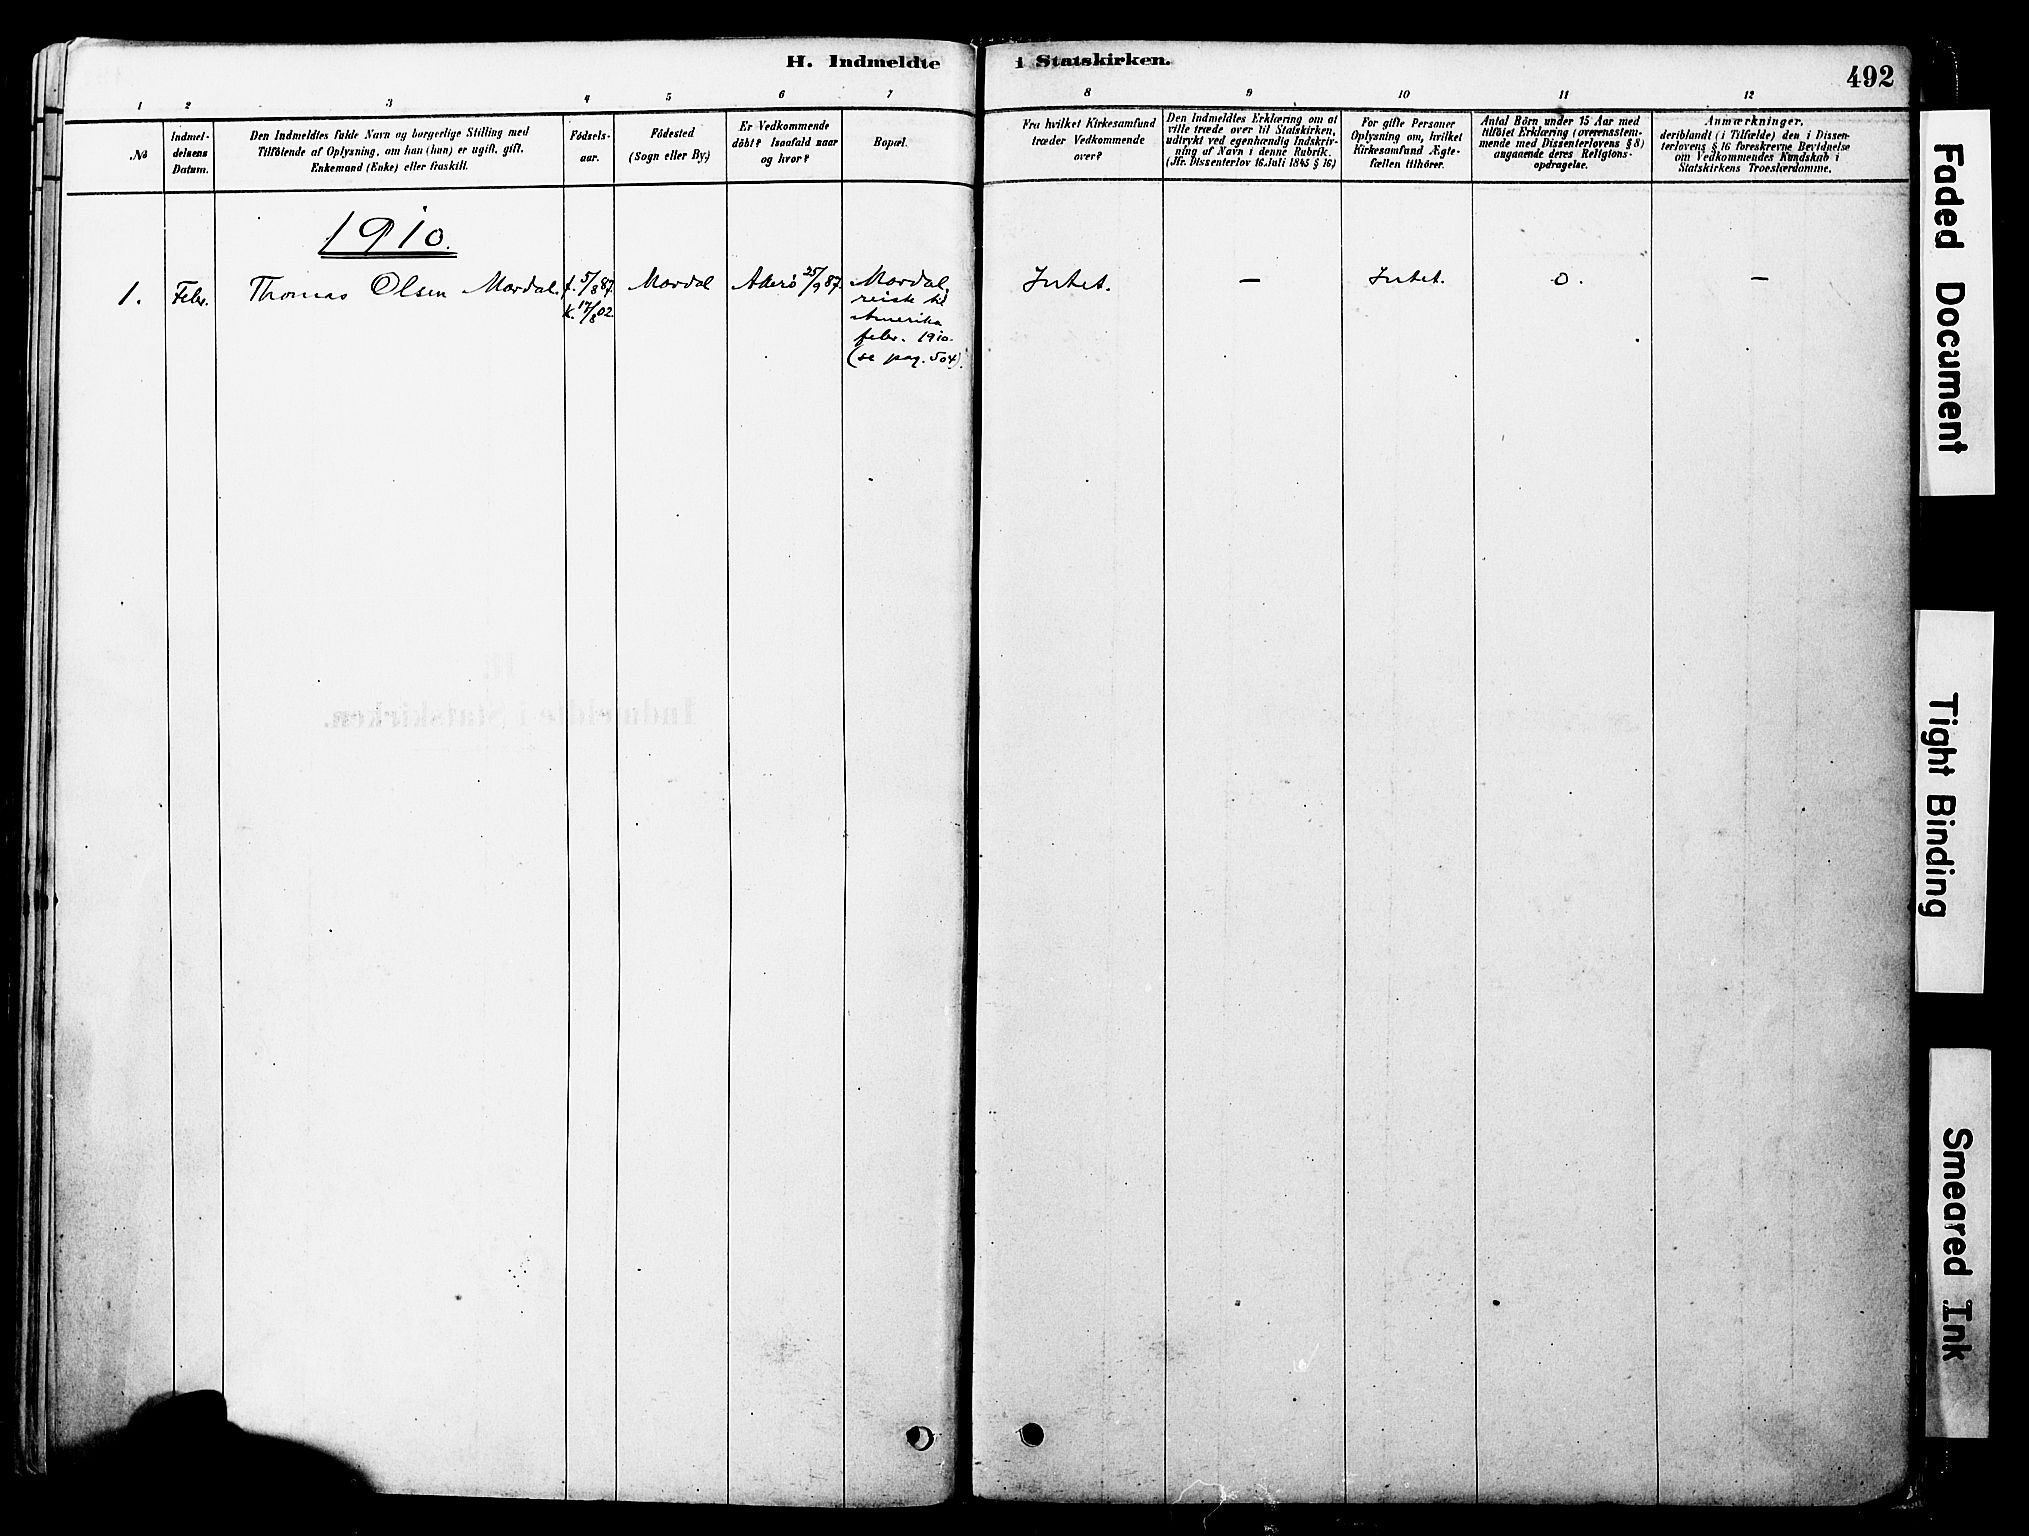 H. Indmeldte i Statskirken.
492
1 2 3 4 5 6 7 8 9 10 11 12
No
Indmel-
delsens
Datum.
Den Indmeldtes fulde Navn og borgerlige Stilling med
Tilföiende af Oplysning, om han (hun) er ugift, gift,
Enkemand (Enke) eller fraskilt.
Födsels-
aar.
Födested
(Sogn eller By.)
Er Vedkommende
döbt? Isaafald naar
og hvor?
Bopæl.
Fra hvilket Kirkesamfund
træder Vedkommende
over?
Den Indmeldtes Erklæring om at
ville træde over til Statskirken,
udtrykt ved egenhændig Indskriv-
ning af Navn i denne Rubrik.
(Jfr. Dissenterlov 16. Juli 1845 § 16)
For gifte Personer
Oplysning om, hvilket
Kirkesamfund Ægte-
fællen tilhörer.
Antal Börn under 15 Aar med
tilföiet Erklæring (overensstem-
mende med Dissenterlovens § 8)
angaaende deres Religions-
opdragelse.
Anmærkninger,
deriblandt (i Tilfælde) den i Dissen-
terlovens § 16 foreskrevne Bevidnelse
om Vedkommendes Kundskab i
Statskirkens Troeslærdomme.
1910.
1. Febr. Thomas Olsen Mordal. f. 5/8 87. Mordal Akerö 25/9 87. Mordal, Intet. — Intet. 0. —
k. 17/8 02
reiste til
Amerika
febr. 1910.
(se pag. 504).
Faded Document
Tight Binding
Smeared Ink